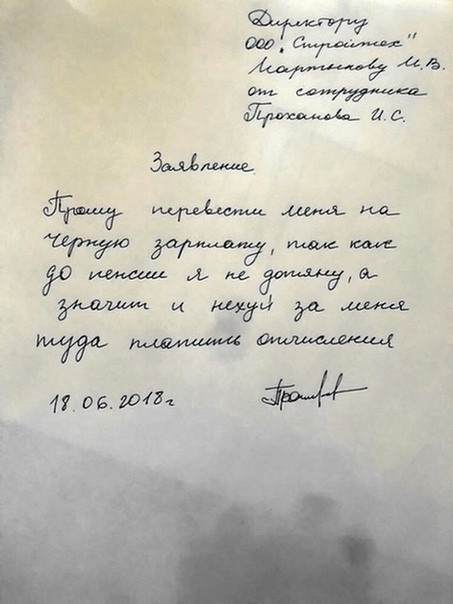 Директору
ООО "Стройтех"
Мартынову И.В.
от сотрудника
Проханова И.С.
Заявление.
Прошу перевести меня на
черную зарплату, так как
до пенсии я не дотяну, а
значит и нехуй за меня
туда платить отчисления
18.06.2018г